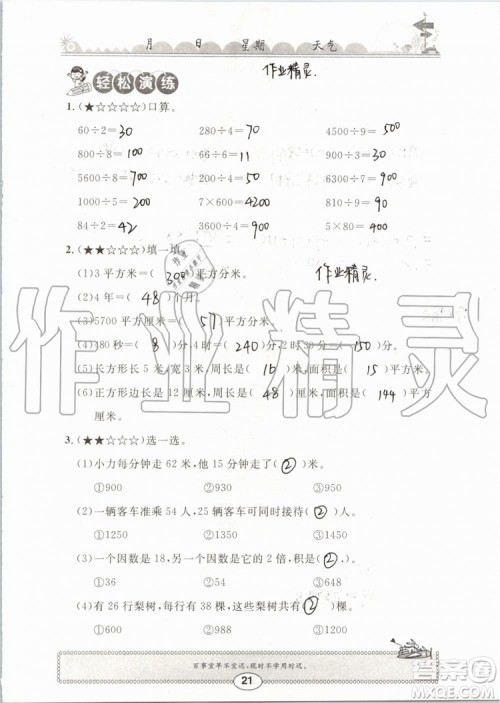 月 日 星期 天气
作业精灵.
轻松演练
1.(★☆☆☆☆)口算。
60÷2=30 280÷4=70 4500÷9=500
800÷8=100 66÷6=11 900÷3=300
5600÷8=700 200÷4=50 6300÷7=900
1000÷5=200 7×600=4200 810÷9=90
84÷2=42 3600÷4=900 5×80=400
2.(★★☆☆☆)填一填。
作业精灵.
(1)3平方米=(300)平方分米。
(2)4年=(48)个月。
(3)5700平方厘米=(57)平方分米。
(4)480秒=(8)分,4时=(240)分,2时30分=(150)分。
(5)长方形长5米,宽3米,周长是(16)米,面积是(15)平方米。
(6)正方形边长是12厘米,周长是(48)厘米,面积是(144)平方
厘米。
3.(★★☆☆☆)选一选。
(1)小力每分钟走62米,他15分钟走了(②)米。
①900 ②930 ③950
(2)一辆客车准乘54人,25辆客车可同时接待(②)人。
①1250 ②1350 ③1450
(3)一个因数是18,另一个因数是它的2倍,积是(③)。
①36 ②54 ③648
(4)有26行梨树,每行有38棵,这些梨树共有(②)棵。
①1090 ②988 ③998
百事宜早不宜迟,现时不学用时迟。
21
作业精灵
答案圈
MXQE.COM